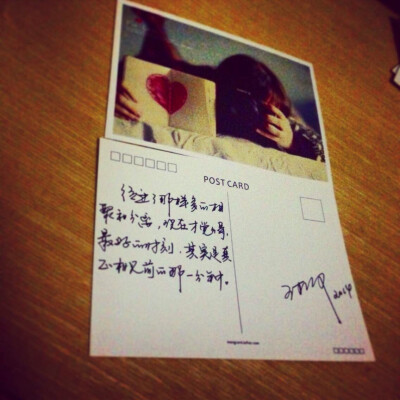 POST CARD
经过了那样多的相
聚和分离,现在才觉得,
最好的时刻,其实是真
正相见前的那一分钟。
2014